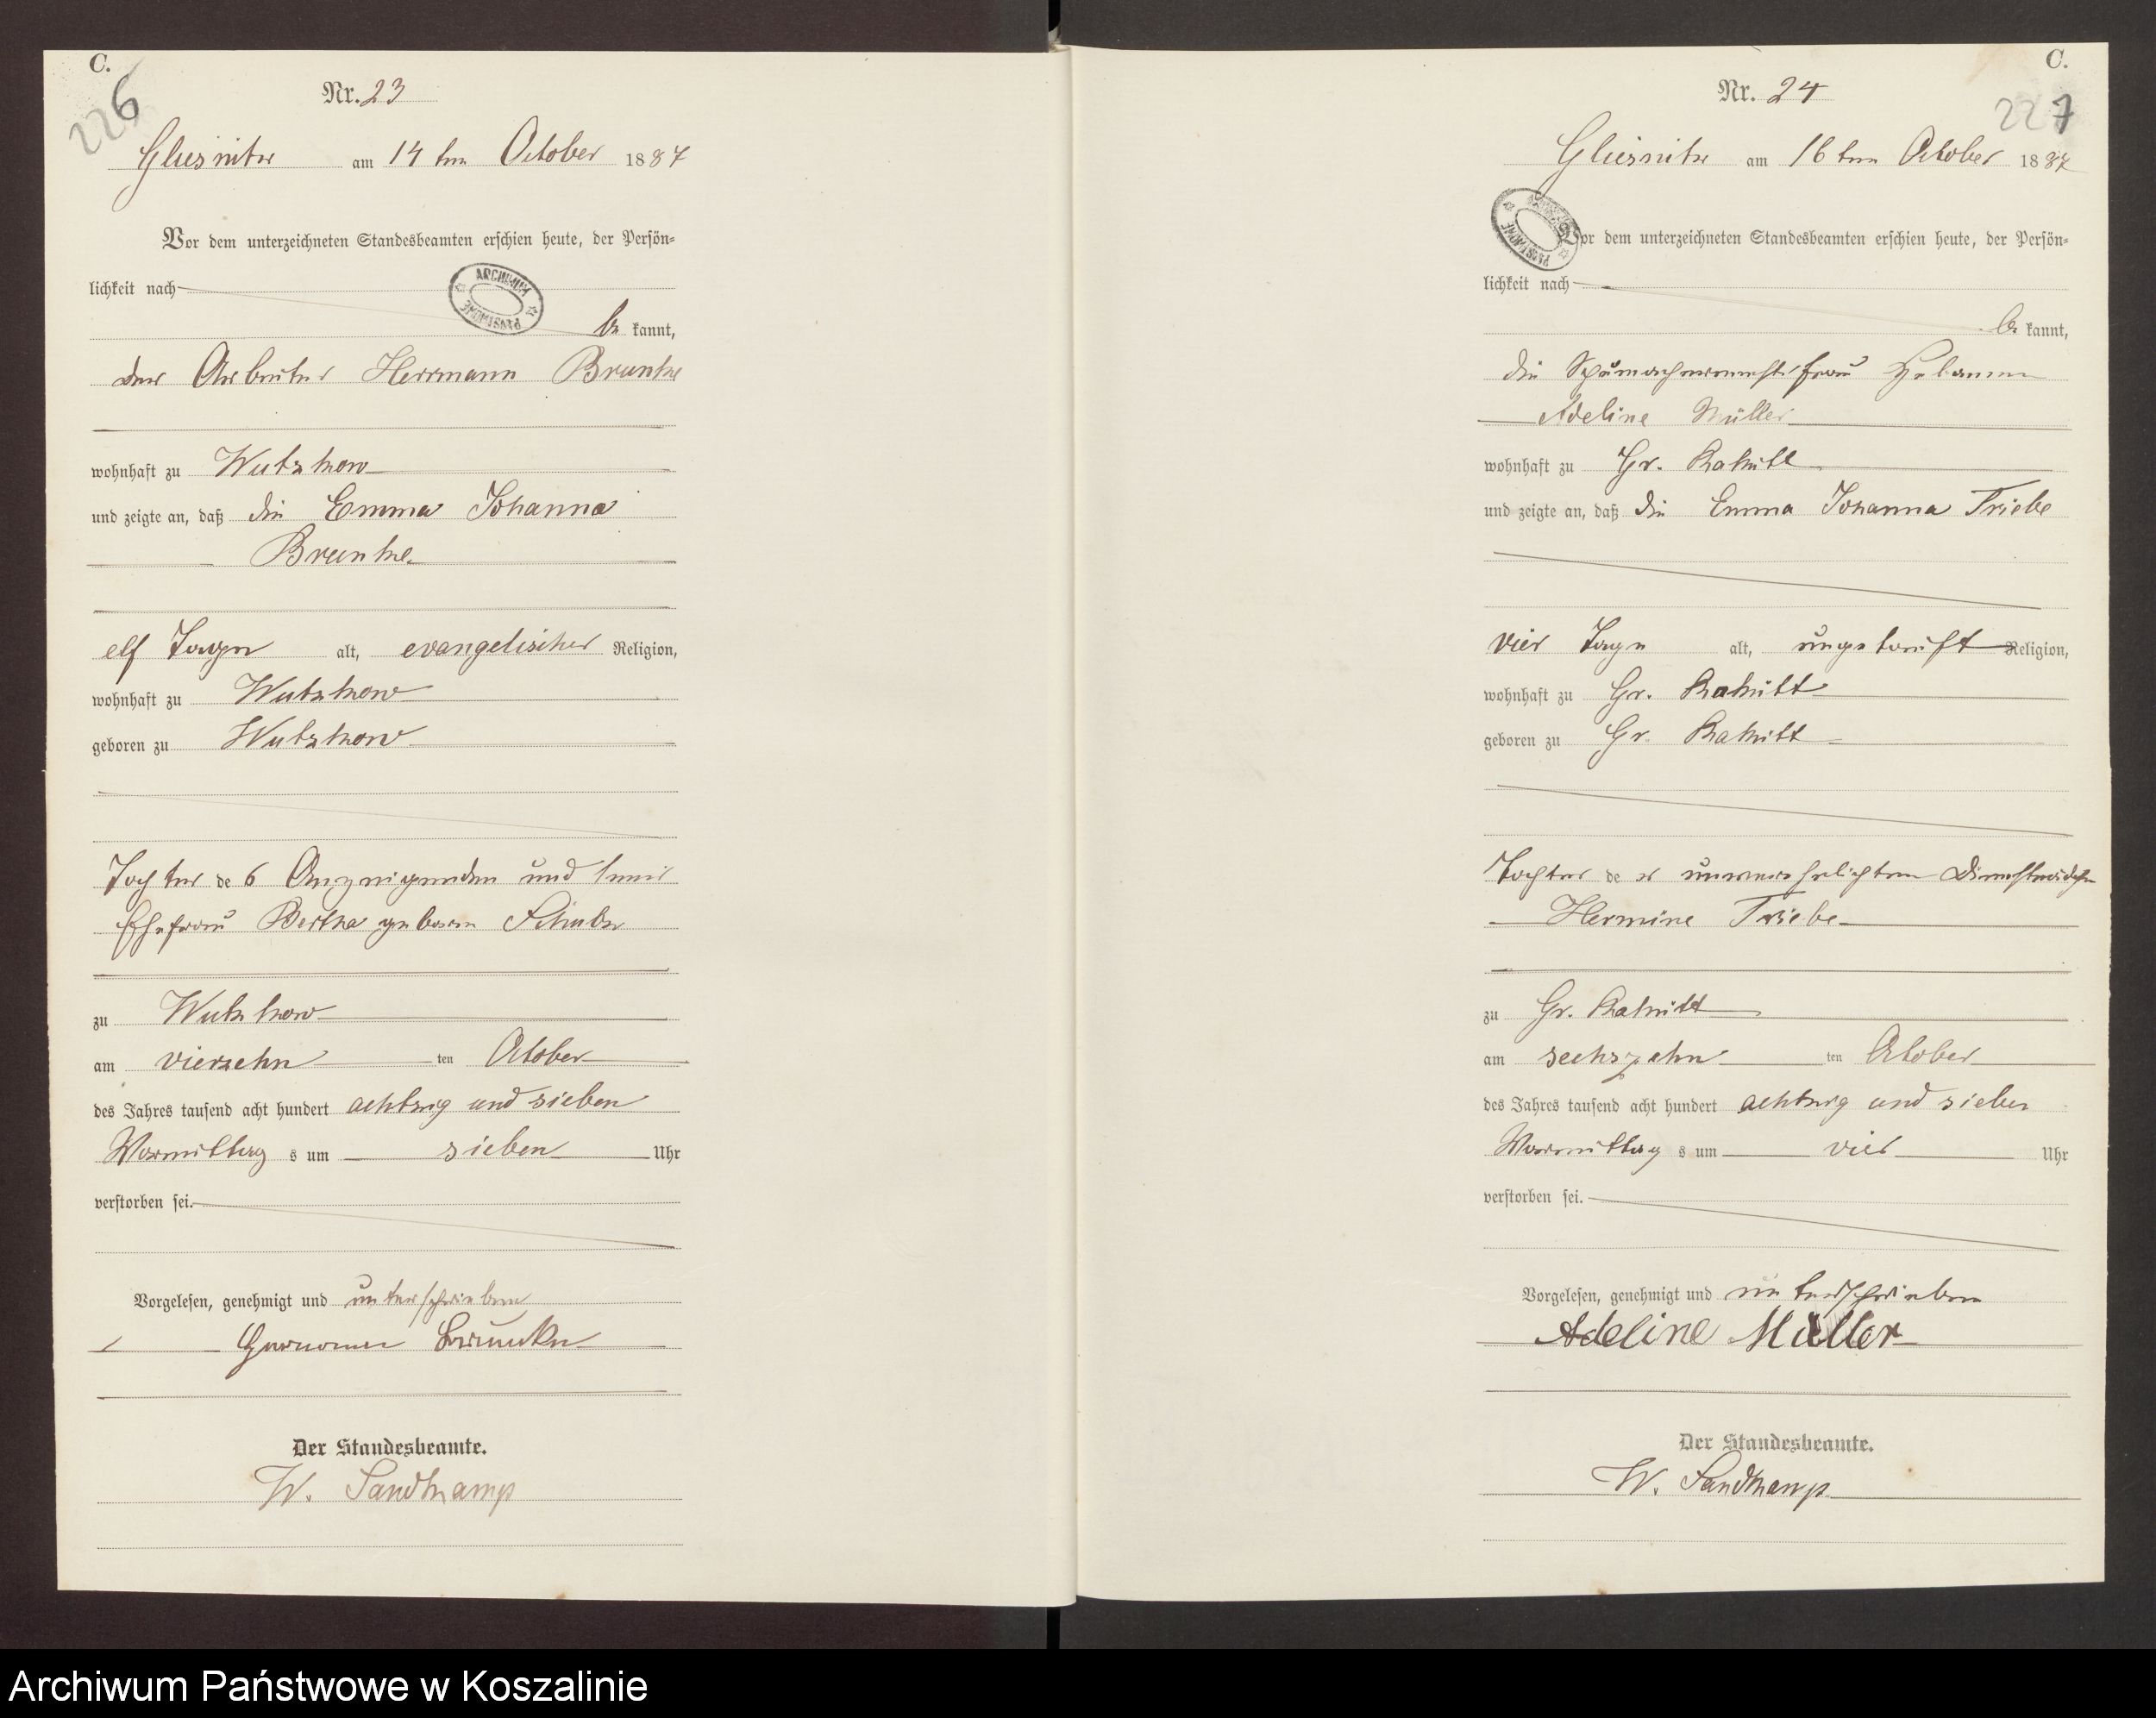 C.
226
Nr. 23
Gliesnitz am 14 ten October 1887
Vor dem unterzeichneten Standesbeamten erschien heute, der Persön-
lichkeit nach
ARCHIWUM PAŃSTWOWE
be kannt,
der Arbeiter Herrmann Brunke
wohnhaft zu Wutzkow
und zeigte an, daß die Emma Johanna
Brunke
elf Tage alt, evangelischer Religion,
wohnhaft zu Wutzkow
geboren zu Wutzkow
Tochter des Anzeigenden und seiner
Ehefrau Bertha geboren
zu Wutzkow
am vierzehn ten October
des Jahres tausend acht hundert achtzig und sieben
Vormittag s um sieben Uhr
verstorben sei.
Vorgelesen, genehmigt und unterschrieben
Brunke
Der Standesbeamte.
W. Sandkamp
C.
227
Nr. 24
Gliesnitz am 16 ten October 1887
ARCHIWUM PAŃSTWOWE
Vor dem unterzeichneten Standesbeamten erschien heute, der Persön-
lichkeit nach
be kannt,
die frau Hebamme
Adeline Müller
wohnhaft zu Gr. Rakitt
und zeigte an, daß die Emma Johanna Triebe
vier Tage alt, ungetauft Religion,
wohnhaft zu Gr. Rakitt
geboren zu Gr. Rakitt
Tochter der unverehelichten Dienstmädchen
Hermine Triebe
zu Gr. Rakitt
am sechszehn ten October
des Jahres tausend acht hundert achtzig und sieben
Vormittag s um vier Uhr
verstorben sei.
Vorgelesen, genehmigt und unterschrieben
Adeline Müller
Der Standesbeamte.
W. Sandkamp
Archiwum Państwowe w Koszalinie